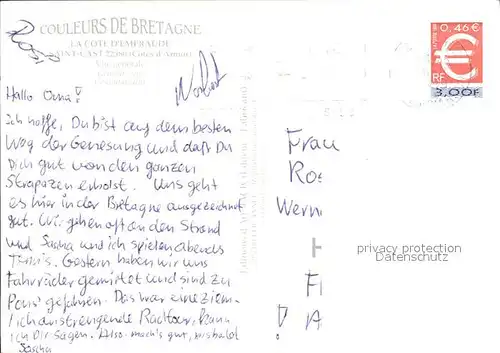 COULEURS DE BRETAGNE
LA COTE D'EMERAUDE
SAINT-CAST 22380 (Côtes d'Armor)
Vue générale
0,46€
RF
3,00F
Norbert
Hallo Oma!
Ich hoffe, Du bist auf dem besten
Weg der Genesung und daß Du
Dich gut von den ganzen
Strapazen erholst. Uns geht
es hier in der Bretagne ausgezeichnet
gut. Wir gehen oft an den Strand
und Sascha und ich spielen abends
Tennis. Gestern haben wir uns
Fahrräder gemietet und sind zu
gefahren. Das war eine ziem-
lich anstrengende Radtour, kann
ich Dir sagen. Also mach's gut, bis bald
Sascha
Frau
Ros
Wern
H
F
A
privacy protection
Datenschutz